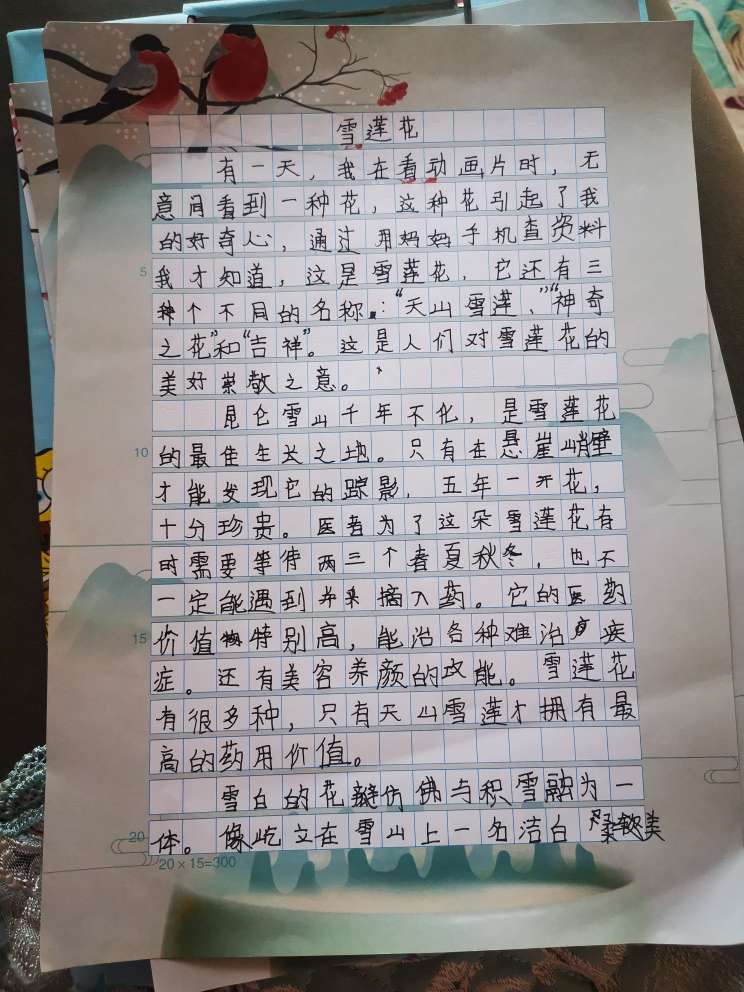 雪莲花
有一天，我在看动画片时，无
意间看到一种花，这种花引起了我
的好奇心，通过用妈妈手机查资料
5 我才知道，这是雪莲花，它还有三
个不同的名称：“天山雪莲、”“神奇
之花”和“吉祥”。这是人们对雪莲花的
美好崇敬之意。
昆仑雪山千年不化，是雪莲花
10 的最佳生长之地。只有在悬崖峭壁
才能发现它的踪影，五年一开花，
十分珍贵。医者为了这朵雪莲花有
时需要等待两三个春夏秋冬，也不
一定能遇到并来摘入药。它的医药
15 价值特别高，能治各种难治疾
症。还有美容养颜的功能。雪莲花
有很多种，只有天山雪莲才拥有最
高的药用价值。
雪白的花瓣仿佛与积雪融为一
20 体。像屹立在雪山上一名洁白柔软美
20×15=300